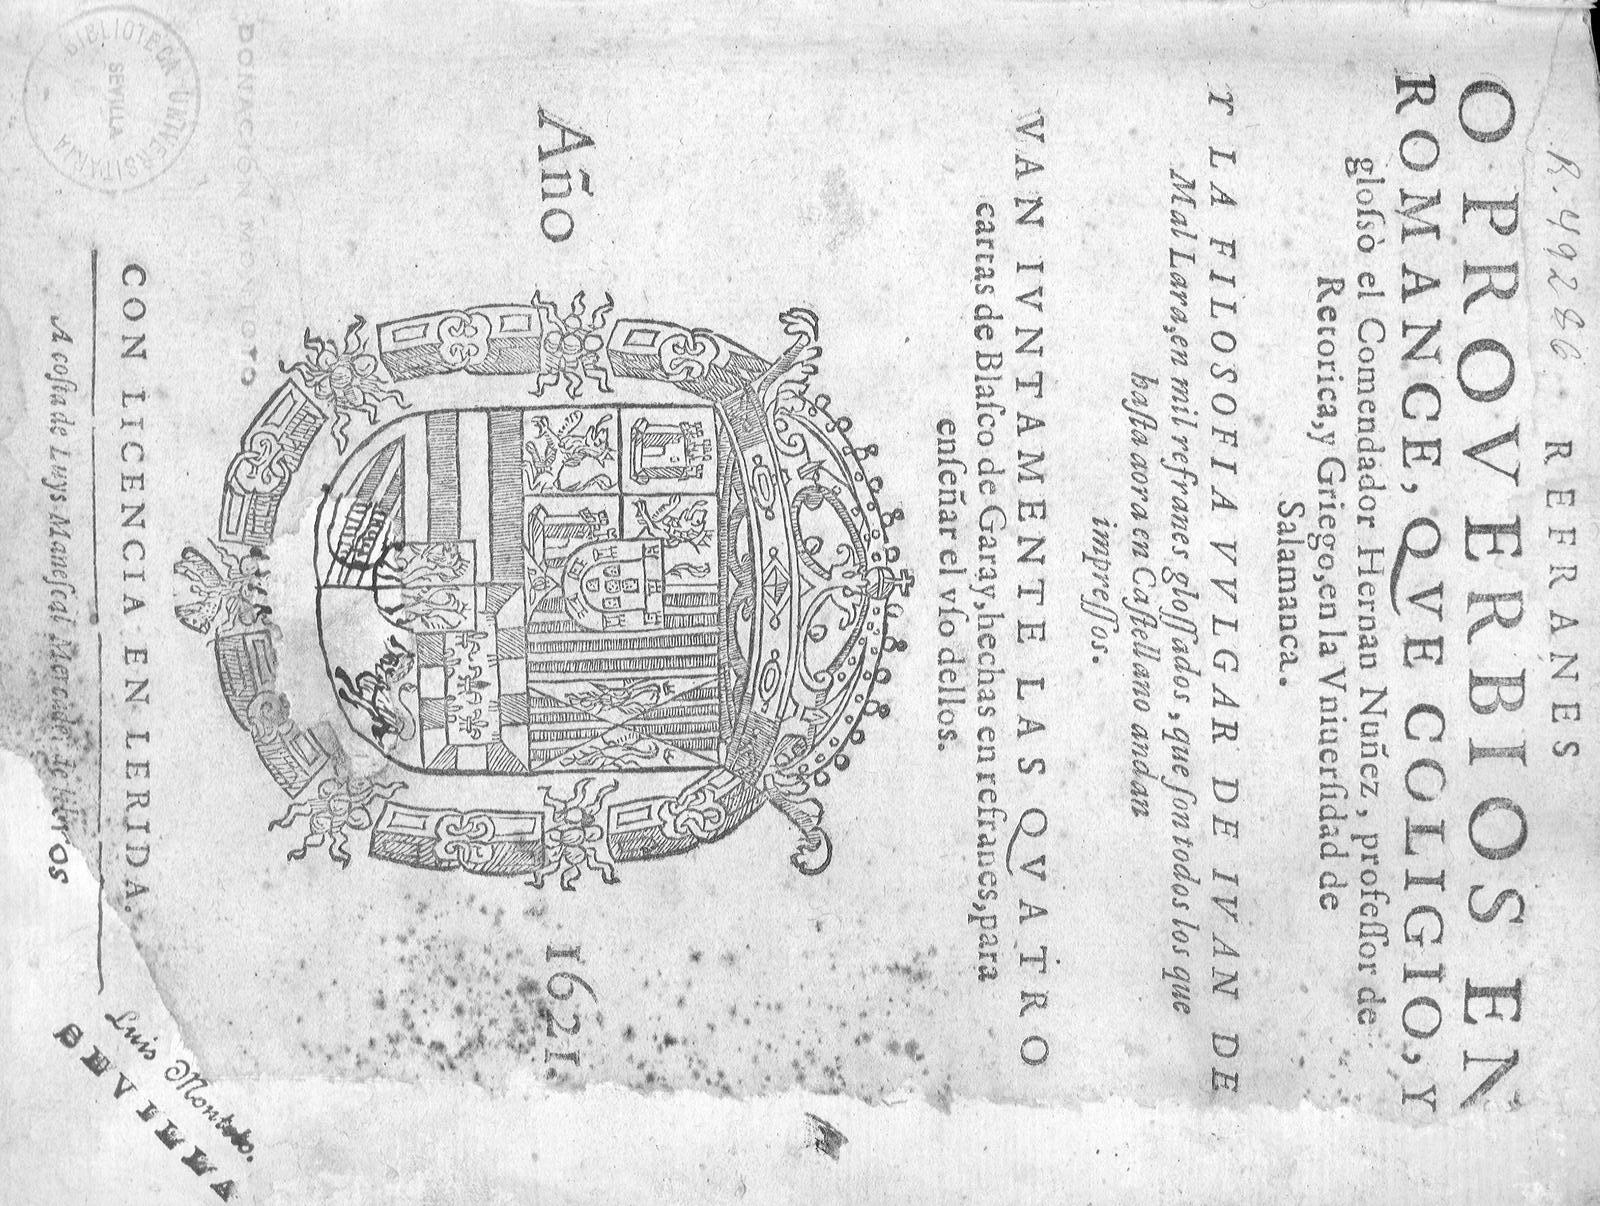 R. 49286
REFRANES
O PROVERBIOS EN
ROMANCE, QVE COLIGIO, Y
gloſsò el Comendador Hernan Nuñez, profeſſor de
Retorica, y Griego, en la Vniuerſidad de
Salamanca.
Y LA FILOSOFIA VVLGAR DE IVAN DE
Mal Lara, en mil refranes gloſſados, que ſon todos los que
haſta aora en Caſtellano andan
impreſſos.
VAN IVNTAMENTE LAS QVATRO
cartas de Blaſco de Garay, hechas en refranes, para
enſeñar el vſo dellos.
Año 1621.
CON LICENCIA EN LERIDA.
A coſta de Luys Maneſcal Mercader de libros
DONACIÓN MONTOTO
BIBLIOTECA UNIVERSITARIA
SEVILLA
Luis Montoto.
SEVILLA